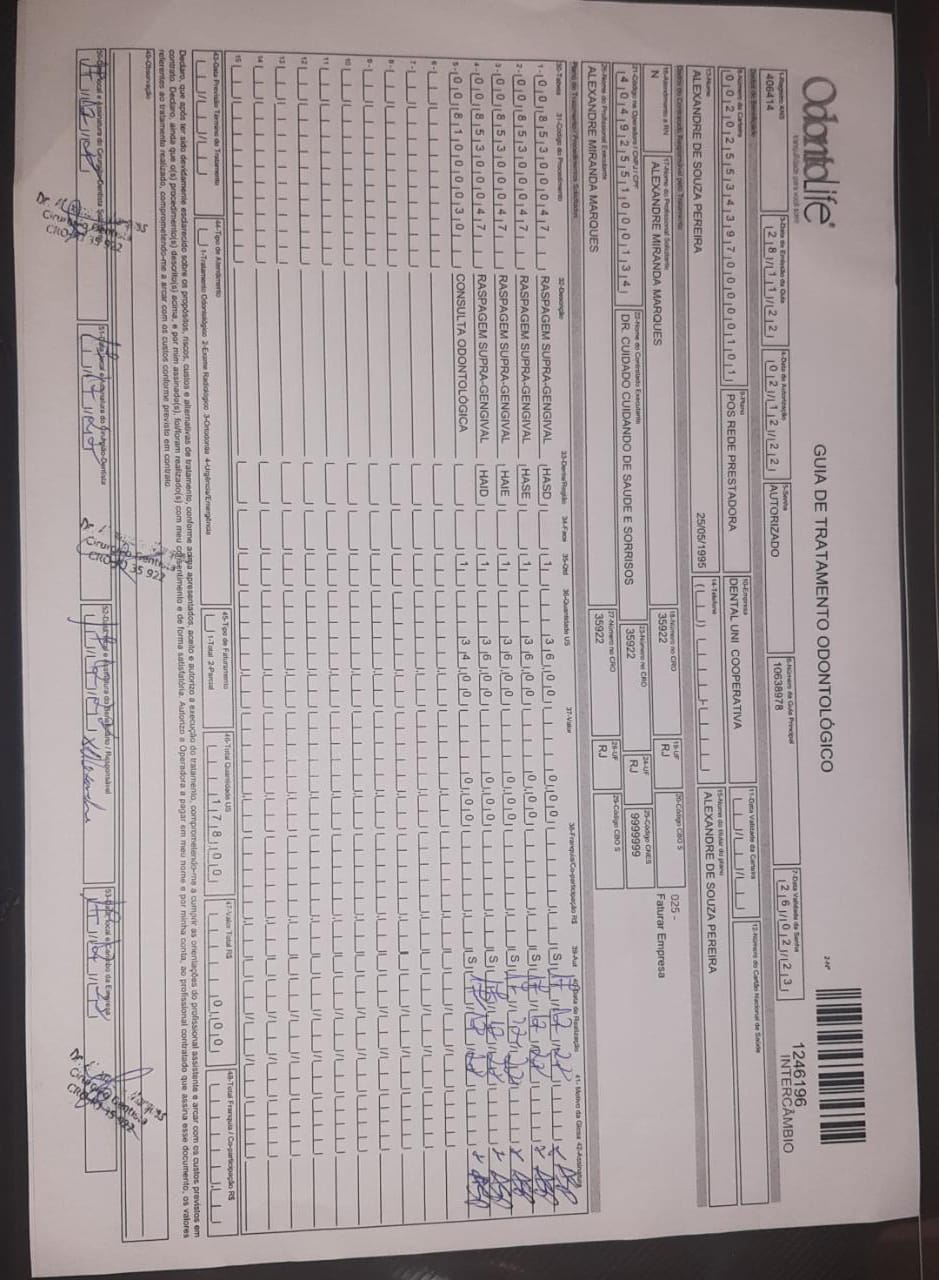 OdontoLife®
GUIA DE TRATAMENTO ODONTOLÓGICO
2-Nº
1246196
INTERCÂMBIO
1-Registro ANS
406414
3-Data de Emissão da Guia
28/11/22
4-Data de Autorização
02/12/22
5-Senha
AUTORIZADO
6-Número da Guia Principal
10638978
7-Data Validade da Senha
26/02/23
Dados do Beneficiário
8-Número da Carteira
9-Plano
POS REDE PRESTADORA
10-Empresa
DENTAL UNI COOPERATIVA
11-Data Validade da Carteira
12-Número do Cartão Nacional de Saúde
13-Nome
ALEXANDRE DE SOUZA PEREIRA
25/05/1995
14-Telefone
15-Nome do titular do plano
ALEXANDRE DE SOUZA PEREIRA
16-Atendimento a RN
N
17-Nome do Profissional Solicitante
ALEXANDRE MIRANDA MARQUES
18-Número no CRO
35922
19-UF
RJ
20-Código CBO S
025 -
Faturar Empresa
21-Código na Operadora / CNPJ / CPF
40492551000134
22-Nome do Contratado Executante
DR. CUIDADO CUIDANDO DE SAUDE E SORRISOS
23-Número no CRO
35922
24-UF
RJ
25-Código CNES
9999999
26-Nome do Profissional Executante
ALEXANDRE MIRANDA MARQUES
27-Número no CRO
35922
28-UF
RJ
29-Código CBO S
Plano de Tratamento / Procedimentos Solicitados
30-Tabela 31-Código do Procedimento 32-Descrição 33-Dente/Região 34-Face 35-Qtd 36-Quantidade US 37-Valor 38-Franquia/Co-participação R$ 39-Aut 40-Data de Realização 41- Motivo da Glosa 42-Assinatura
1- 00 85300047 RASPAGEM SUPRA-GENGIVAL HASD 1 36,00 0,00 S
2- 00 85300047 RASPAGEM SUPRA-GENGIVAL HASE 1 36,00 0,00 S
3- 00 85300047 RASPAGEM SUPRA-GENGIVAL HAIE 1 36,00 0,00 S
4- 00 85300047 RASPAGEM SUPRA-GENGIVAL HAID 1 36,00 0,00 S
5- 00 81000030 CONSULTA ODONTOLÓGICA 1 34,00 0,00 S
6 -
7 -
8 -
9 -
10
11
12
13
14
15
43-Data Previsão Término do Tratamento
44-Tipo de Atendimento
1-Tratamento Odontológico 2-Exame Radiológico 3-Ortodontia 4-Urgência/Emergência
45-Tipo de Faturamento
1-Total 2-Parcial
46-Total Quantidade US
178,00
47-Valor Total R$
0,00
48-Total Franquia / Co-participação R$
Declaro, que após ter sido devidamente esclarecido sobre os propósitos, riscos, custos e alternativas de tratamento, conforme acima apresentados, aceito e autorizo a execução do tratamento, comprometendo-me a cumprir as orientações do profissional assistente e arcar com os custos previstos em
contrato. Declaro, ainda que o(s) procedimento(s) descrito(s) acima, e por mim assinado(s), foi/foram realizado(s) com meu consentimento e de forma satisfatória. Autorizo a Operadora a pagar em meu nome e por minha conta, ao profissional contratado que assina esse documento, os valores
referentes ao tratamento realizado, comprometendo-me a arcar com os custos conforme previsto em contrato.
49-Observação
51-Data, local e Assinatura do Cirurgião-Dentista
52-Data, local e Assinatura do Beneficiário / Responsável
53-Data, local e Carimbo da Empresa